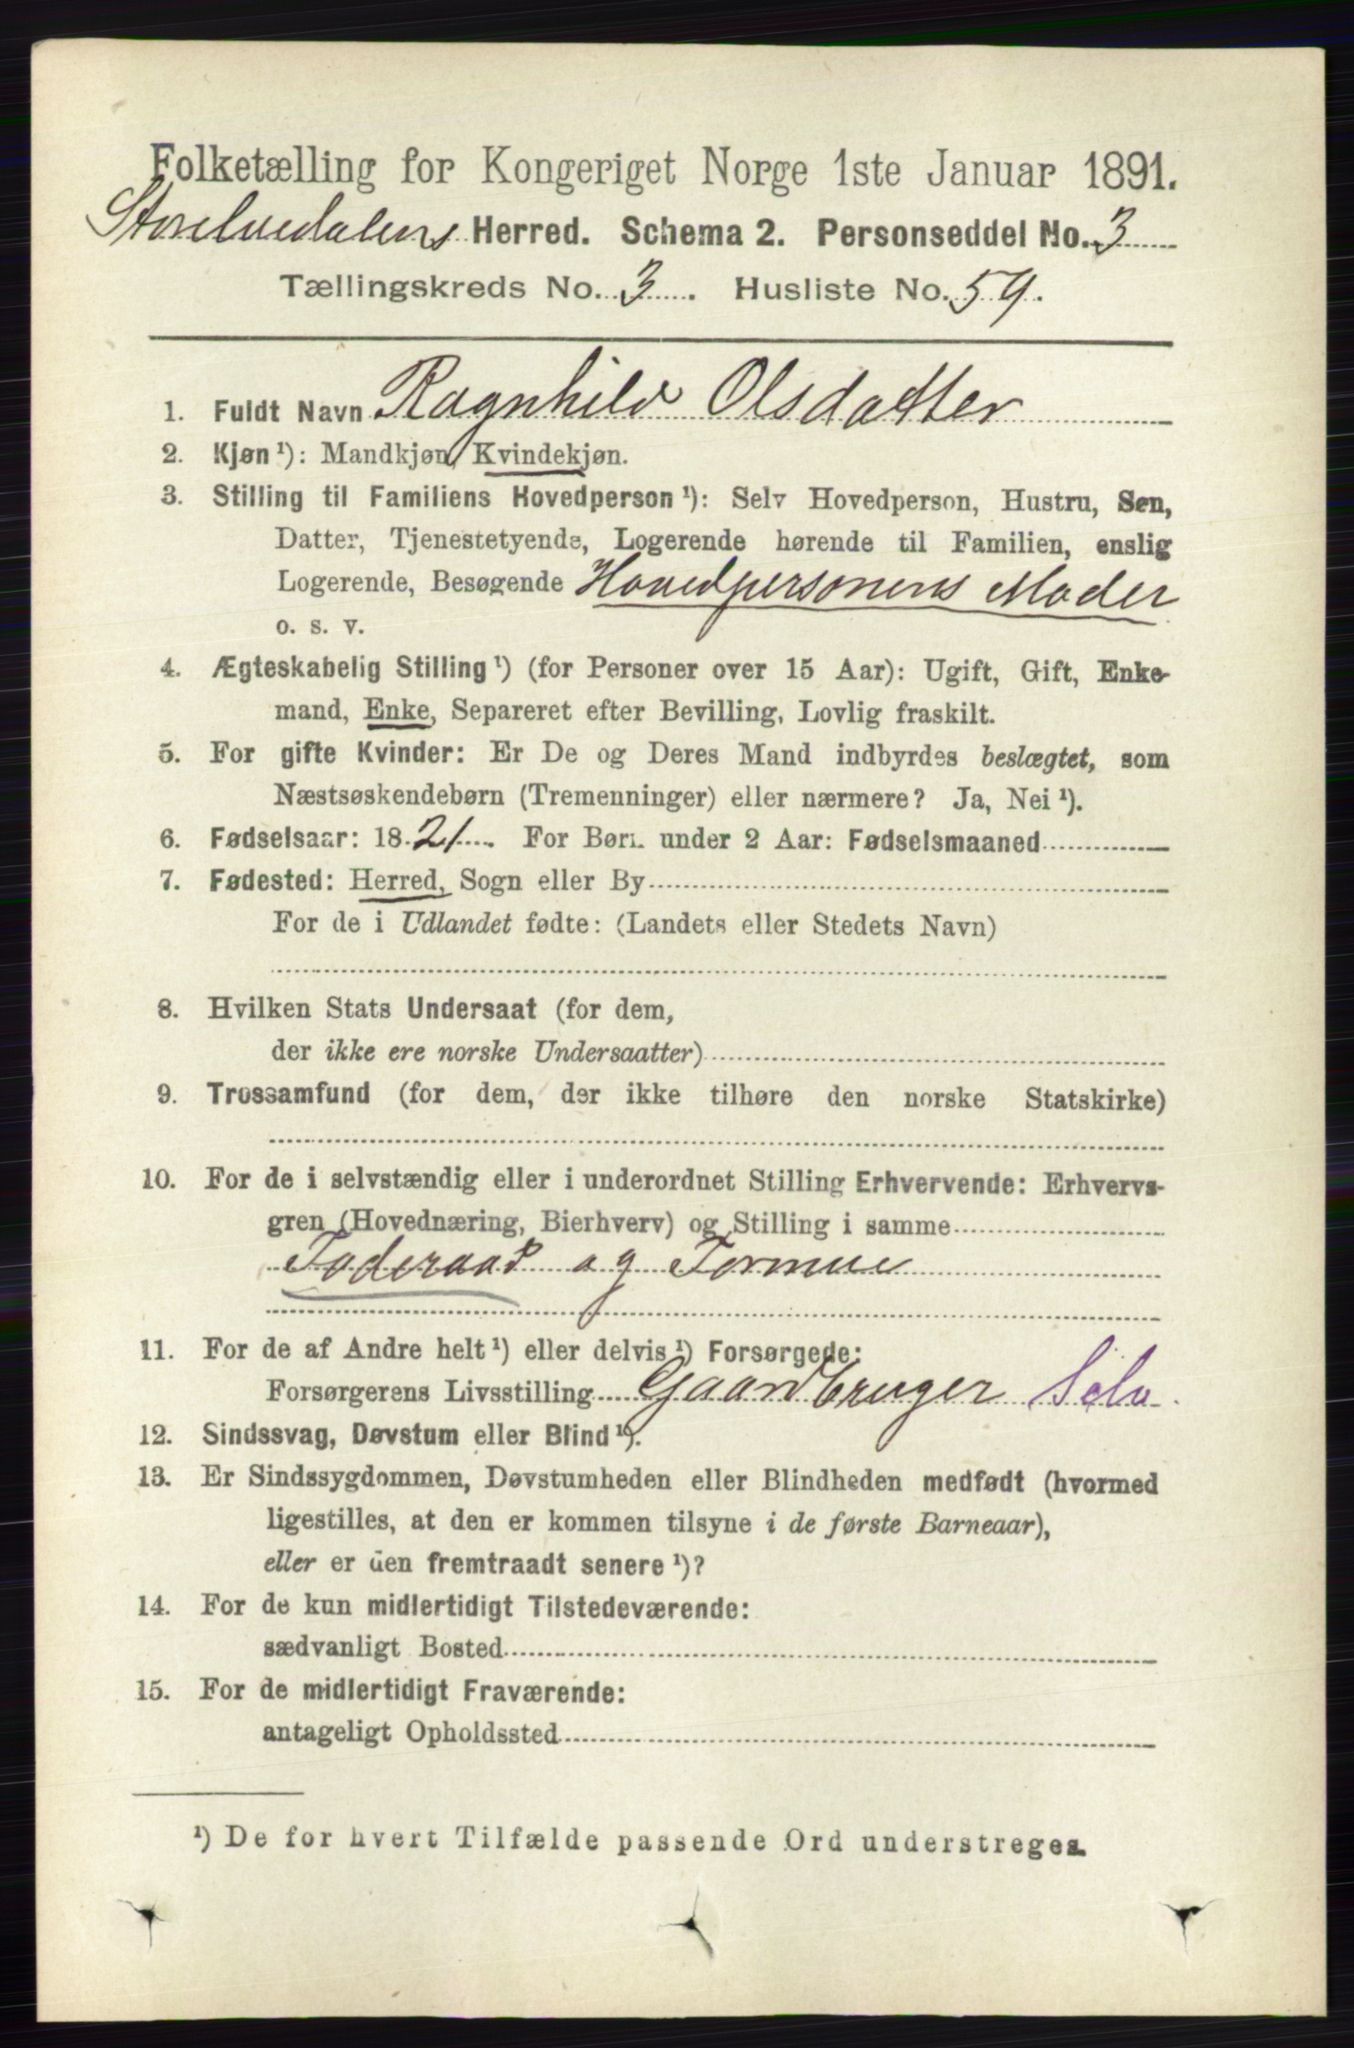 Folketælling for Kongeriget Norge 1ste Januar 1891.
Storelvedalens Herred. Schema 2. Personseddel No. 3
Tællingskreds No. 3. Husliste No. 59.
1. Fuldt Navn Ragnhild Olsdatter
2. Kjøn ¹): Mandkjøn, Kvindekjøn.
3. Stilling til Familiens Hovedperson ¹): Selv Hovedperson, Hustru, Søn,
Datter, Tjenestetyende, Logerende hørende til Familien, enslig
Logerende, Besøgende Hovedpersonens Moder
o. s. v.
4. Ægteskabelig Stilling ¹) (for Personer over 15 Aar): Ugift, Gift, Enke-
mand, Enke, Separeret efter Bevilling, Lovlig fraskilt.
5. For gifte Kvinder: Er De og Deres Mand indbyrdes beslægtet, som
Næstsøskendebørn (Tremenninger) eller nærmere? Ja, Nei ¹).
6. Fødselsaar: 1821. For Børn under 2 Aar: Fødselsmaaned
7. Fødested: Herred, Sogn eller By
For de i Udlandet fødte: (Landets eller Stedets Navn)
8. Hvilken Stats Undersaat (for dem,
der ikke ere norske Undersaatter)
9. Trossamfund (for dem, der ikke tilhøre den norske Statskirke)
10. For de i selvstændig eller i underordnet Stilling Erhvervende: Erhvervs-
gren (Hovednæring, Bierhverv) og Stilling i samme
Foderaad og Formue
11. For de af Andre helt ¹) eller delvis ¹) Forsørgede:
Forsørgerens Livsstilling Gaardbruger Selv.
12. Sindssvag, Døvstum eller Blind ¹).
13. Er Sindssygdommen, Døvstumheden eller Blindheden medfødt (hvormed
ligestilles, at den er kommen tilsyne i de første Barneaar),
eller er den fremtraadt senere ¹)?
14. For de kun midlertidigt Tilstedeværende:
sædvanligt Bosted
15. For de midlertidigt Fraværende:
antageligt Opholdssted
¹) De for hvert Tilfælde passende Ord understreges.